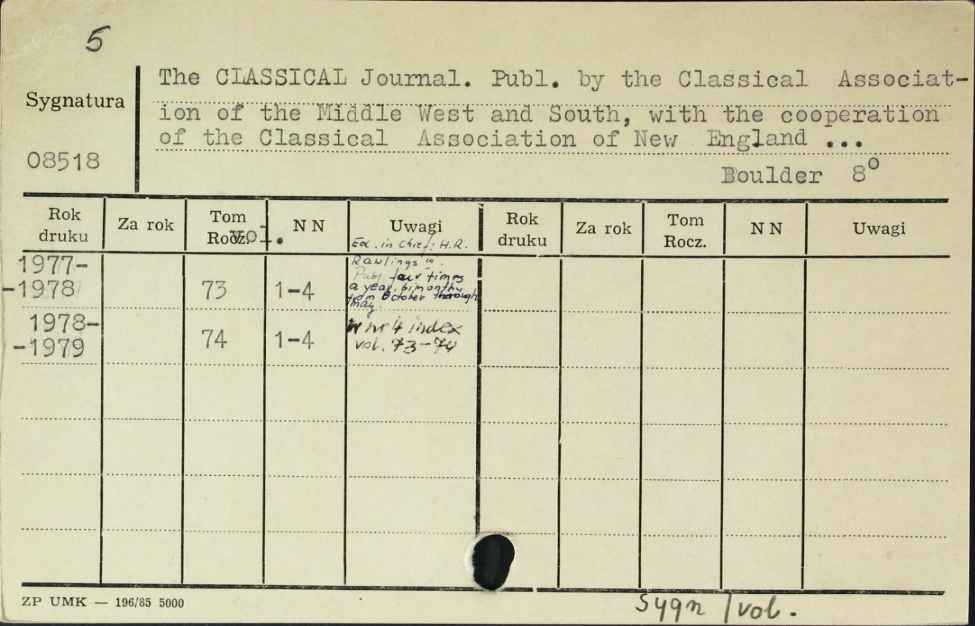 5
The CLASSICAL Journal. Publ. by the Classical Associat-
Sygnatura
ion of the Middle West and South, with the cooperation
of the Classical Association of New England ...
08518
Boulder 8°
Rok druku Za rok Tom Rocz. Vol. NN Uwagi Rok druku Za rok Tom Rocz. NN Uwagi
Ed. in Chief: H.R.
Rawlings
1977-
Publ. four times
-1978 73 1-4
a year, bimonthly
from October thorough
May
1978-
W nr 4 index
-1979 74 1-4
vol. 73-74
ZP UMK — 196/85 5000
Sygn /vol.